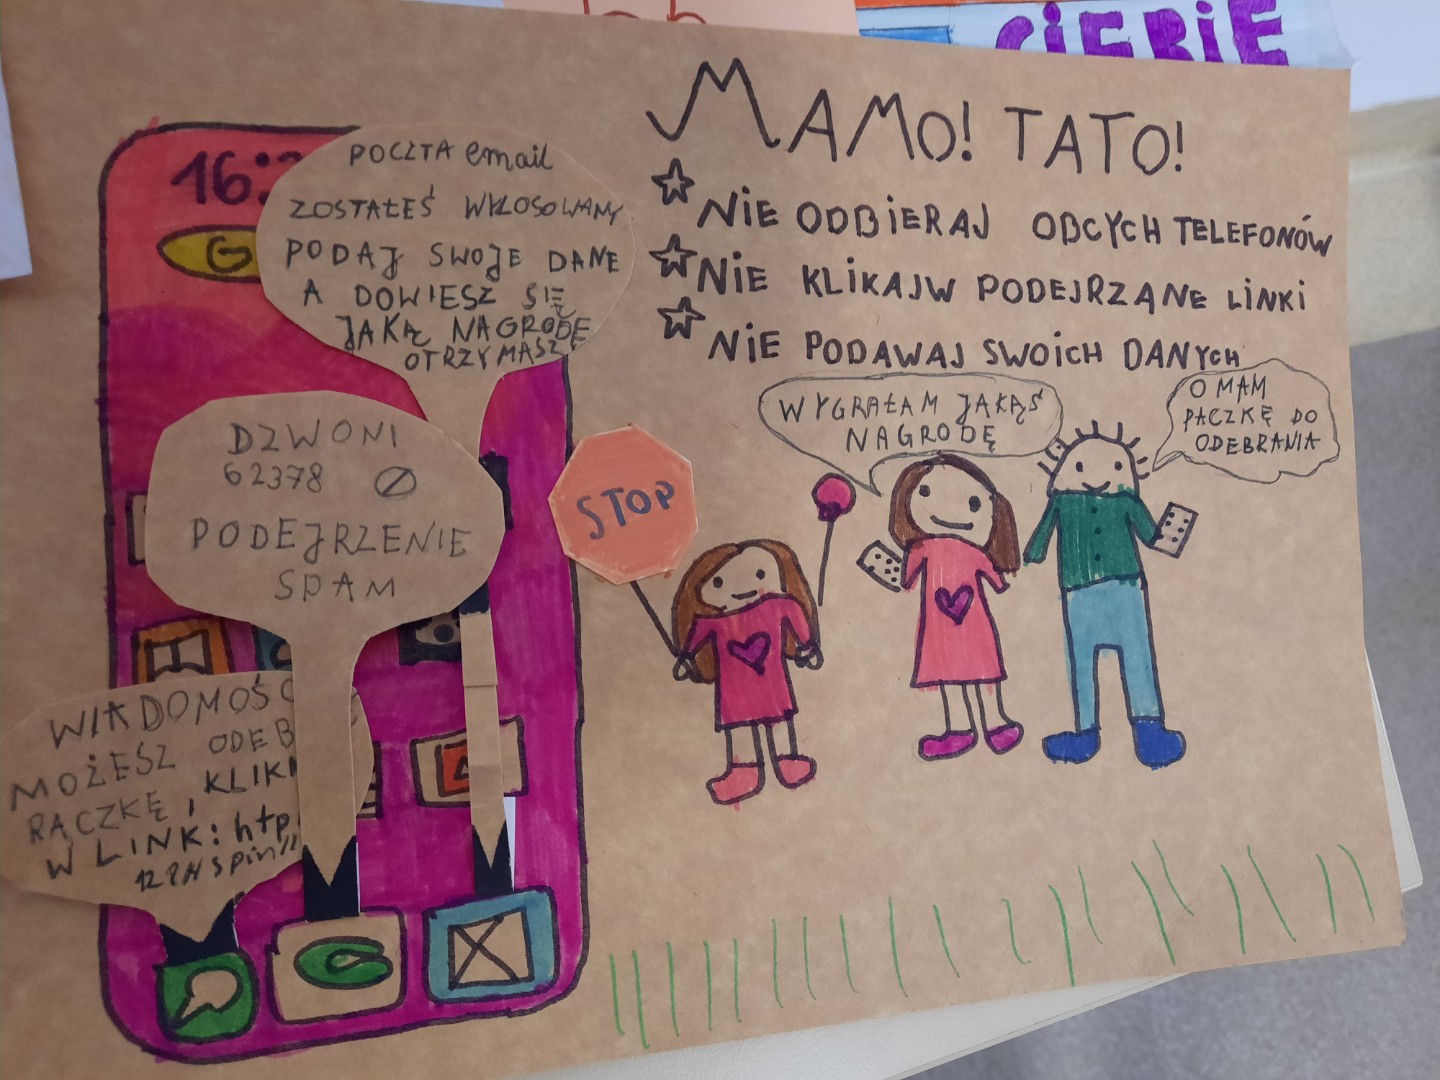 CIEBIE
MAMO! TATO!
NIE ODBIERAJ OBCYCH TELEFONÓW
NIE KLIKAJW PODEJRZANE LINKI
NIE PODAWAJ SWOICH DANYCH
16:
G
POCZTA email
ZOSTAŁEŚ WYLOSOWANY
PODAJ SWOJE DANE
A DOWIESZ SIĘ
JAKĄ NAGRODĘ
OTRZYMASZ
DZWONI
62378
PODEJRZENIE
SPAM
WIADOMOŚ
MOŻESZ ODEB
PACZKĘ, KLIKN
W LINK: htp
STOP
WYGRAŁAM JAKĄŚ
NAGRODĘ
O MAM
PACZKĘ DO
ODEBRANIA